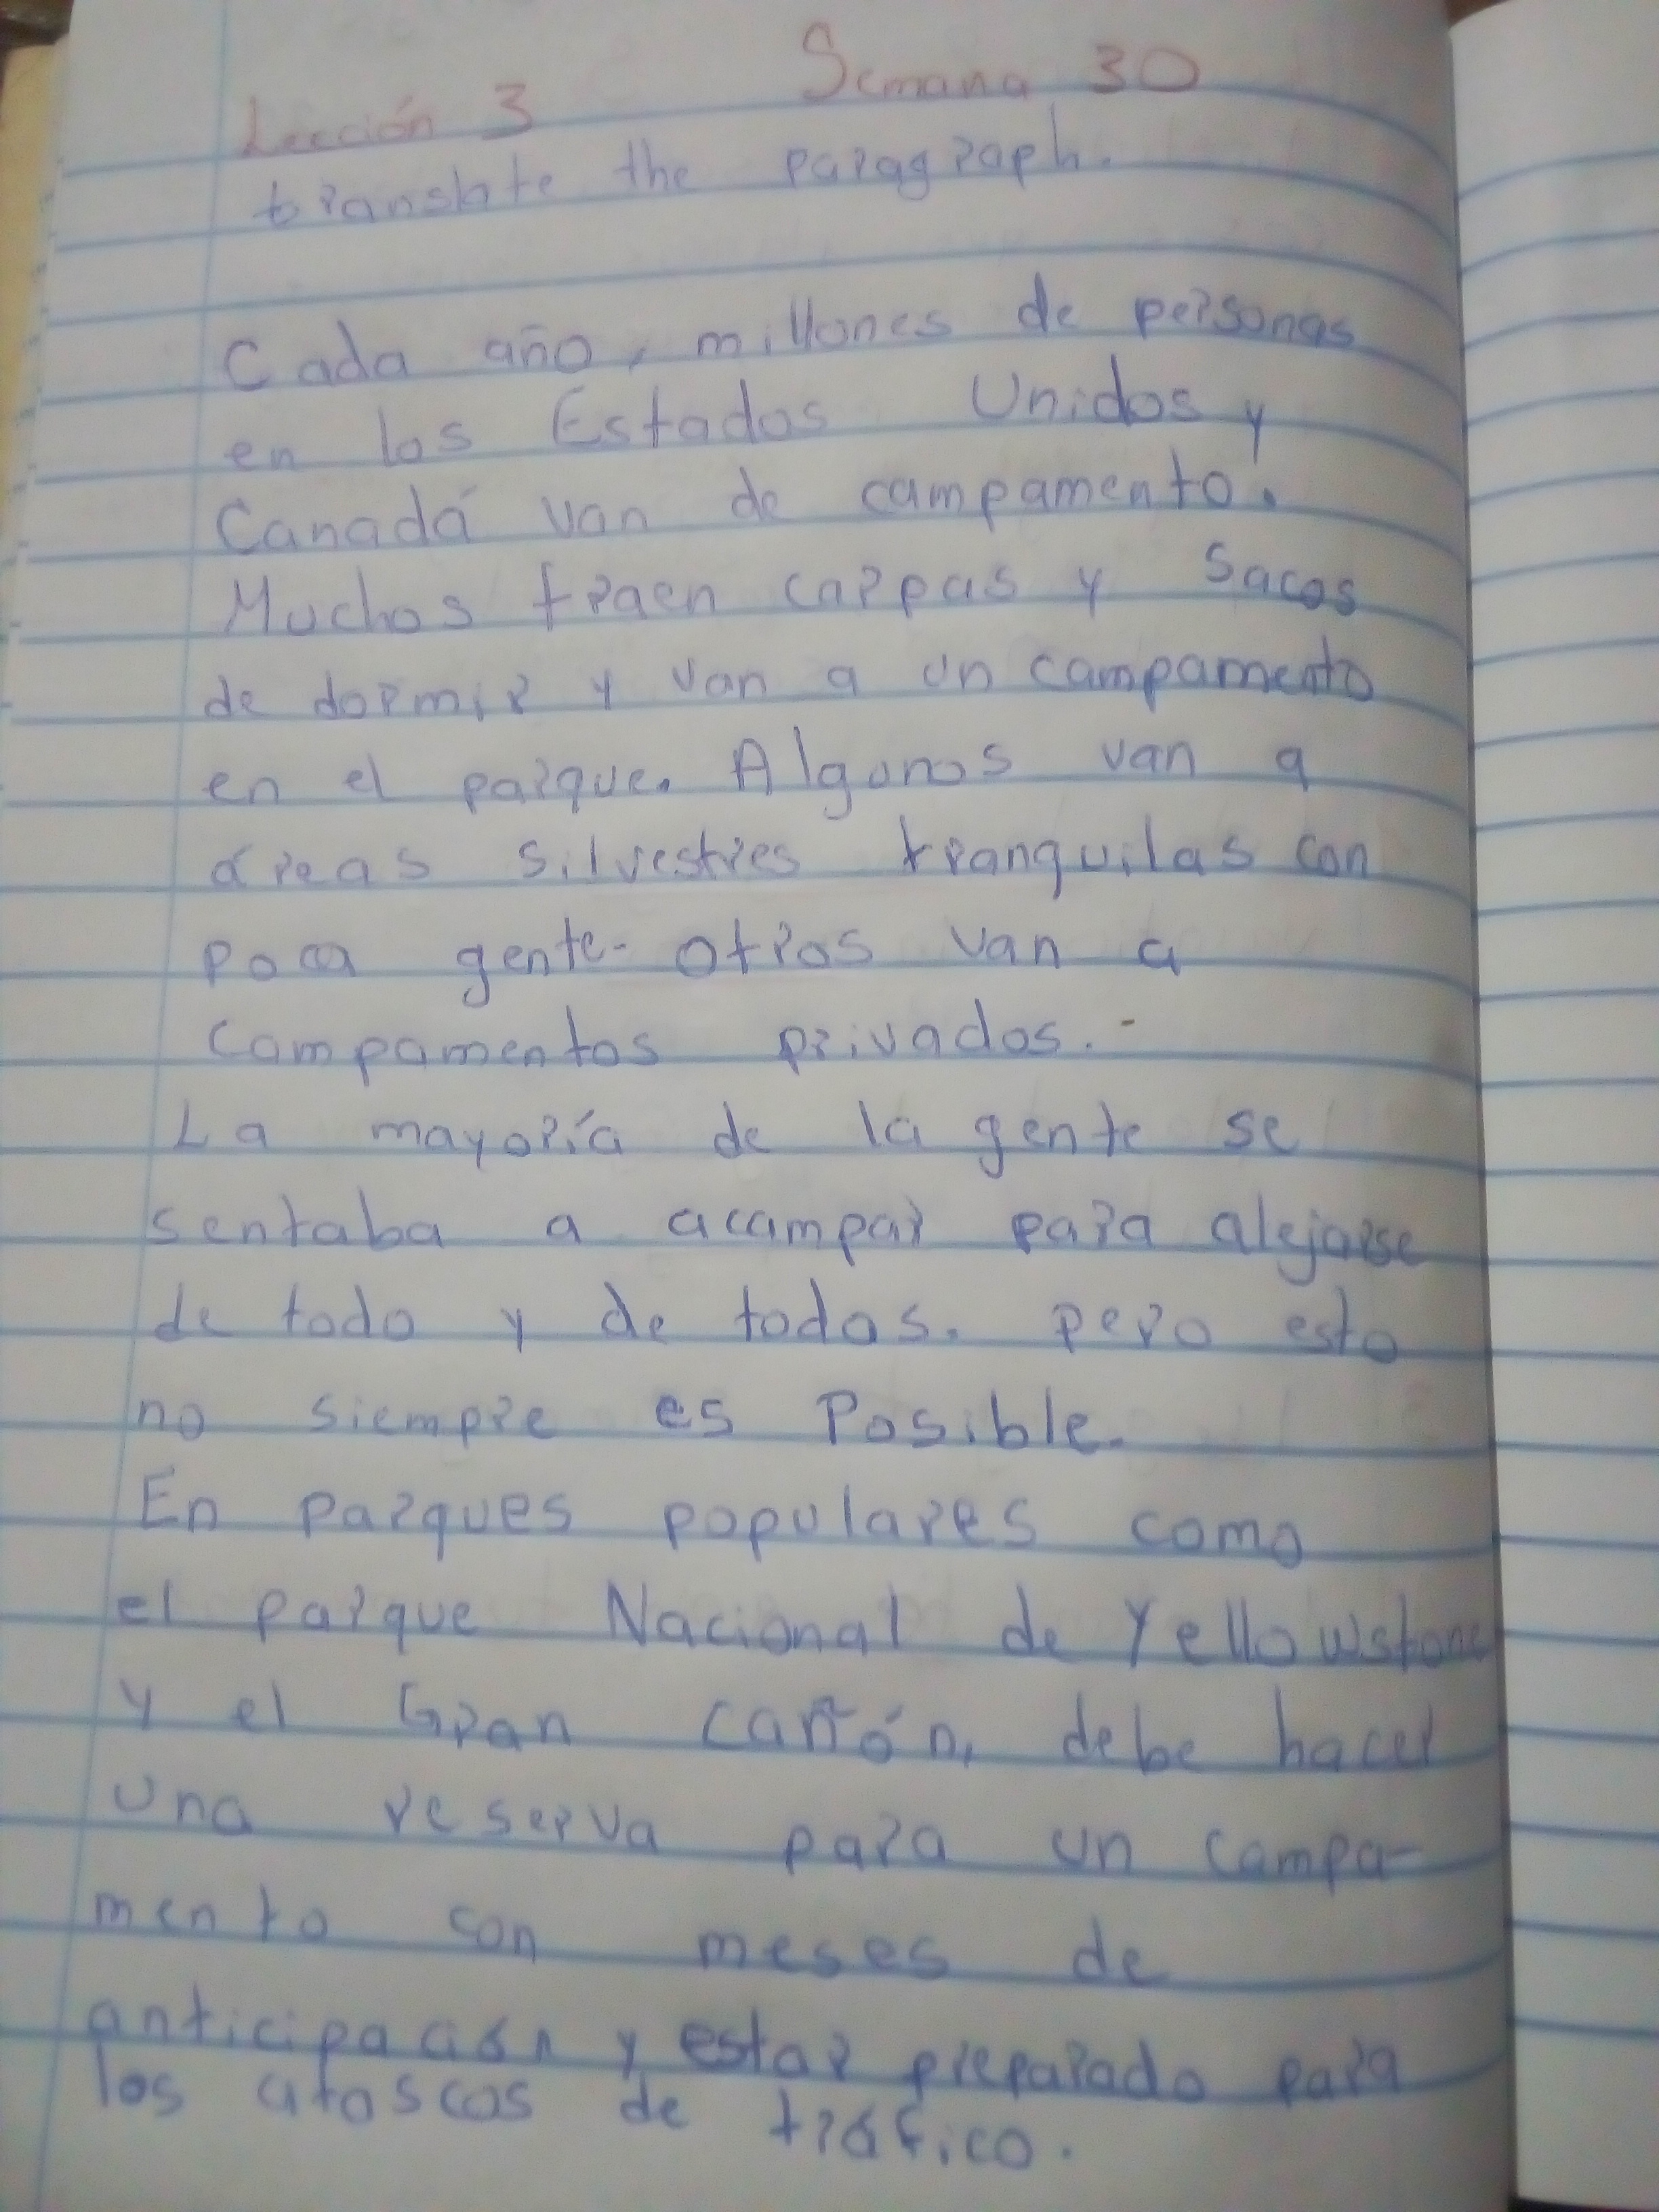 Semana 30
Lección 3
translate the paragraph.
Cada año, millones de personas
en los Estados Unidos y
Canadá van de campamento.
Muchos traen carpas y sacos
de dormir y van a un campamento
en el parque. Algunos van a
áreas silvestres tranquilas con
poca gente. otros van a
campamentos privados.-
La mayoría de la gente se
sentaba a acampar para alejarse
de todo y de todos. pero esto
no siempre es Posible.
En parques populares como
el parque Nacional de Yellowstone
y el Gran cañón, debe hacer
una reserva para un campa-
mento son meses de
anticipación y estar preparado para
los atascos de tráfico.